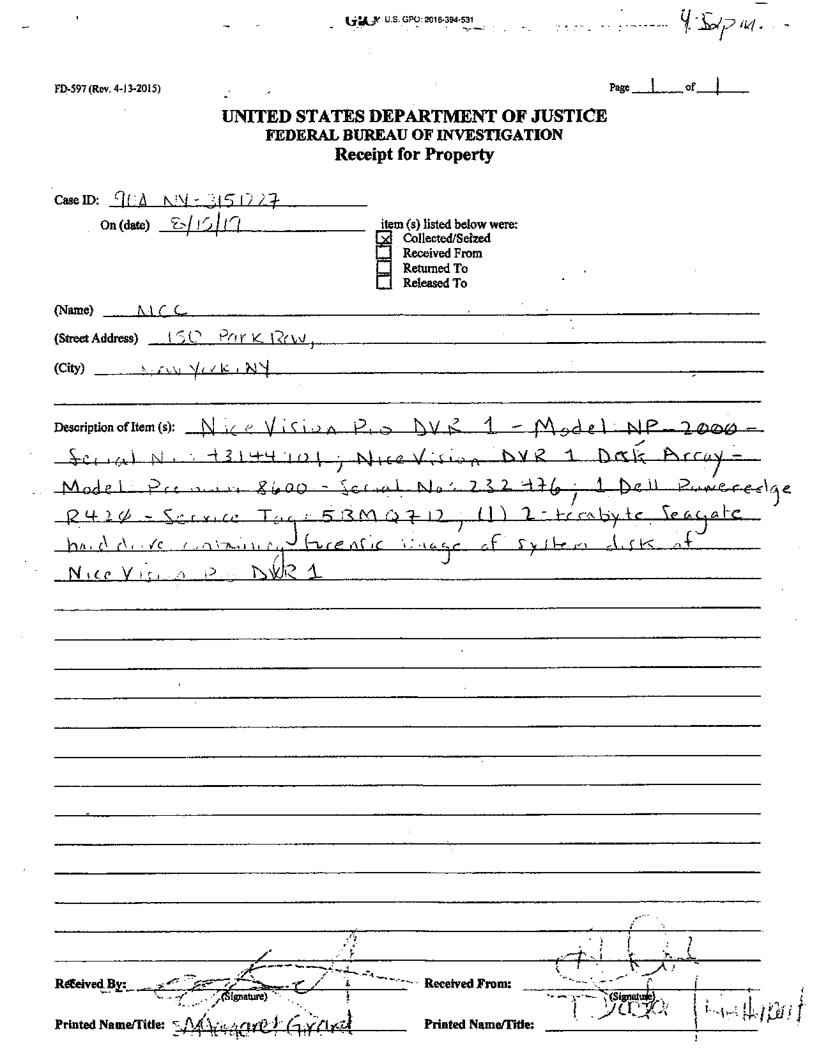 U.S. GPO: 2016-394-531
FD-597 (Rev. 4-13-2015)
Page 1 of 1
UNITED STATES DEPARTMENT OF JUSTICE
FEDERAL BUREAU OF INVESTIGATION
Receipt for Property
Case ID: 90A NY-3151227
On (date) 8/15/19
item (s) listed below were:
Collected/Seized
Received From
Returned To
Released To
(Name) MCC
(Street Address) 150 Park Row,
(City) New York, NY
Description of Item (s): Nice Vision Pro DVR 1 - Model NP-2000 -
Serial No: ; Nice Vision DVR 1 Disk Array -
Model 8600 - Serial No: ; 1 Dell Poweredge
R420 - Service Tag: 5BMQ712; (1) 2-terabyte Seagate
hard drive containing forensic image of system disk of
Nice Vision Pro DVR 1
Received By:
(Signature)
Received From:
(Signature)
Printed Name/Title:
Printed Name/Title: